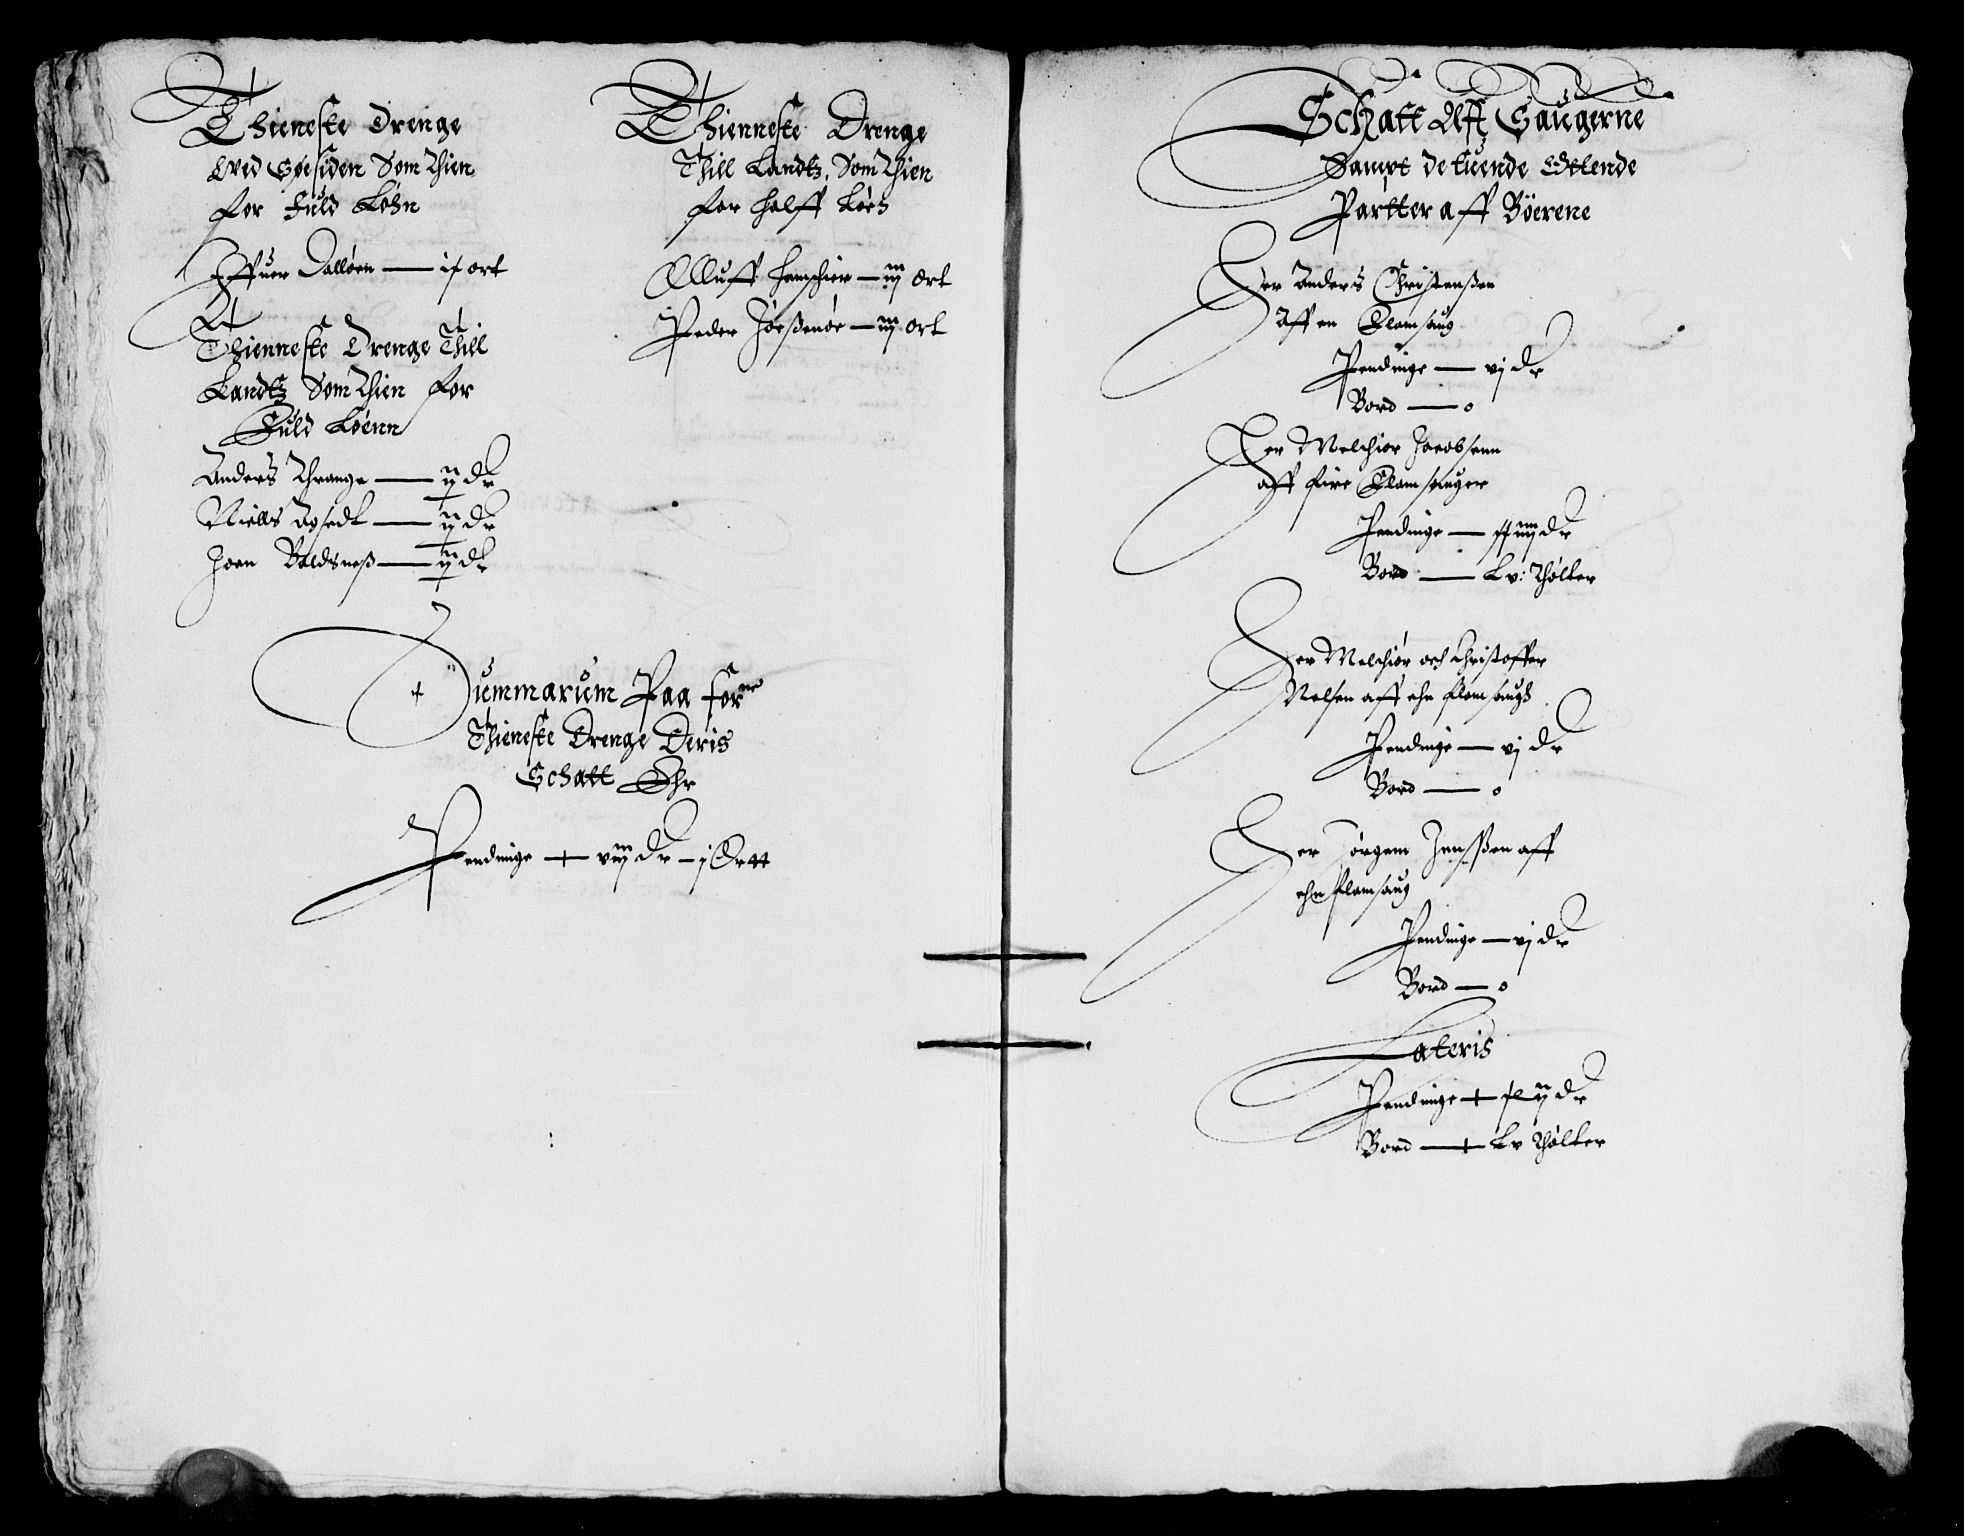 Thieneste Drenge
Wed Søesiden Som Thien
for Fuld Løhn
Iffuer Dalløen — iſ ort
Thienneste Drenge Till
Landtz Som Thien for
Fuld Løenn
Anders Thrange — ij dr
Niells Agsedt — ij dr
Joen Baldsneß — ij dr
Thienneste Drenge
Till Landtz, Som Thien
for halff Løen
Olluff — iij Ort
Peder — iij ort
Summarum Paa forne
Thieneste Drenge Deris
Schatt Ehr
Pendinge — viij dr — j Ortt
Schatt Aff Saugerne
Sampt De tuende
Partter aff Böerne
Her Anders Christenßen
Aff en Flomsaug
Pendinge — vj dr
Bord — 0
Her Melchior Jacobsenn
aff fire Flomsauger
Pendinge — dr
Bord — Lv: Thølter
Her Melchior och Christoffer
Nelsen aff ehn flomsaugh
Pendinge — vj dr
Bord — 0
Her Jørgen Jenssen aff
ehn flomsaug
Pendinge — vj dr
Bord — 0
Lateris
Pendinge — xlij dr
Bord — Lv Thølter